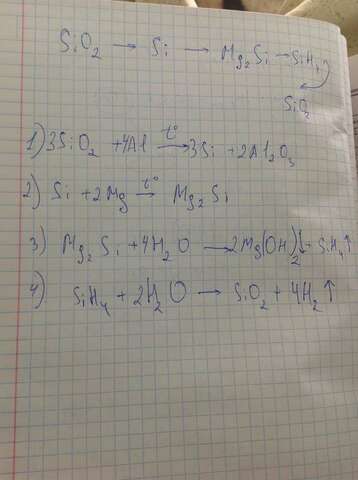 SiO₂ → Si → Mg₂Si → SiH₄
SiO₂
1) 3SiO₂ + 4Al t° → 3Si + 2Al₂O₃
2) Si + 2Mg t° → Mg₂Si
3) Mg₂Si + 4H₂O → 2Mg(OH)₂↓ + SiH₄↑
4) SiH₄ + 2H₂O → SiO₂ + 4H₂↑